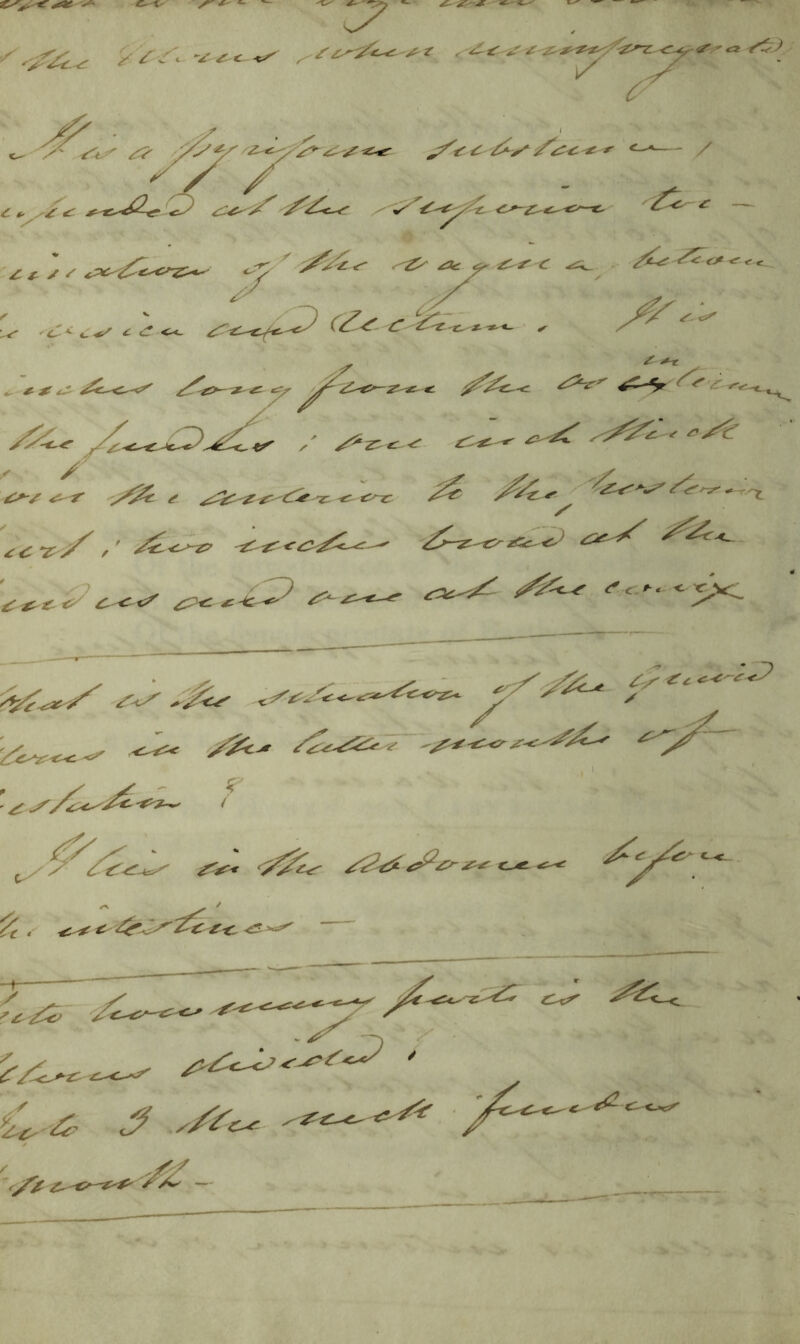 the Uterus when unimpregnated
It is a pyriforme substance /
suspended at the superior ter-
mination of the vagina between
vesica and Rectum. It is
inches long from the os in
the fundus; one inch thick
over the anterior to the posterior
part; two inches broad at the
fundus and one at the cervix
What is the situation of the Gravid
Uterus in the latter months of
gestation?
It lies in the Abdomen before
the intestines —
into how many parts is the
Uterus divided?
Into 3 the neck fundus
mouth -